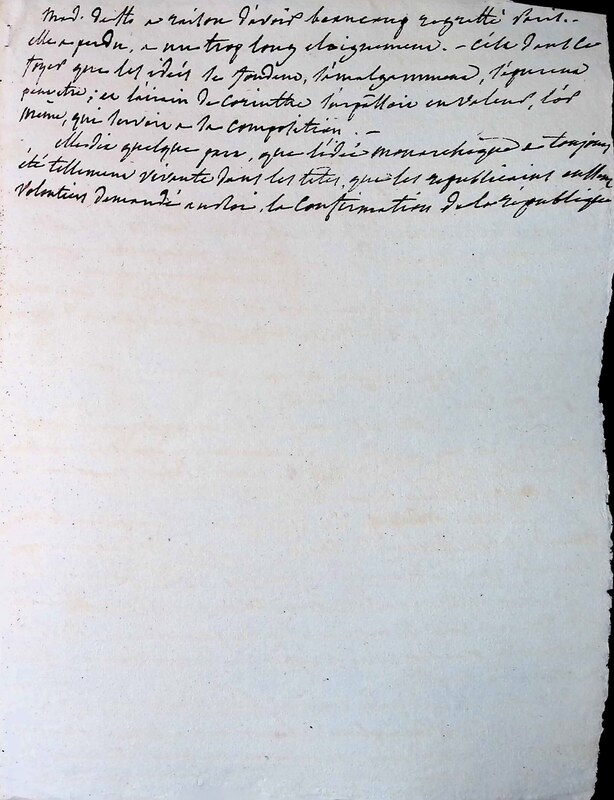 Mad. de St. a raison d'avoir beaucoup regretté Paris. –
elle a perdu, a un trop long eloignement. – C'est dans ce
foyer que les idées se fondent, s'amalgamment, s'épurent
peut etre; et l'airain de corinthe surpassoit en valeur, l'or
même, que servoit a sa composition. –
Elle dit quelque part, que l'idée monarchique a toujours
été tellement vivante dans les têtes, que les républicains
volontiers demandé au roi, la confirmation de la république